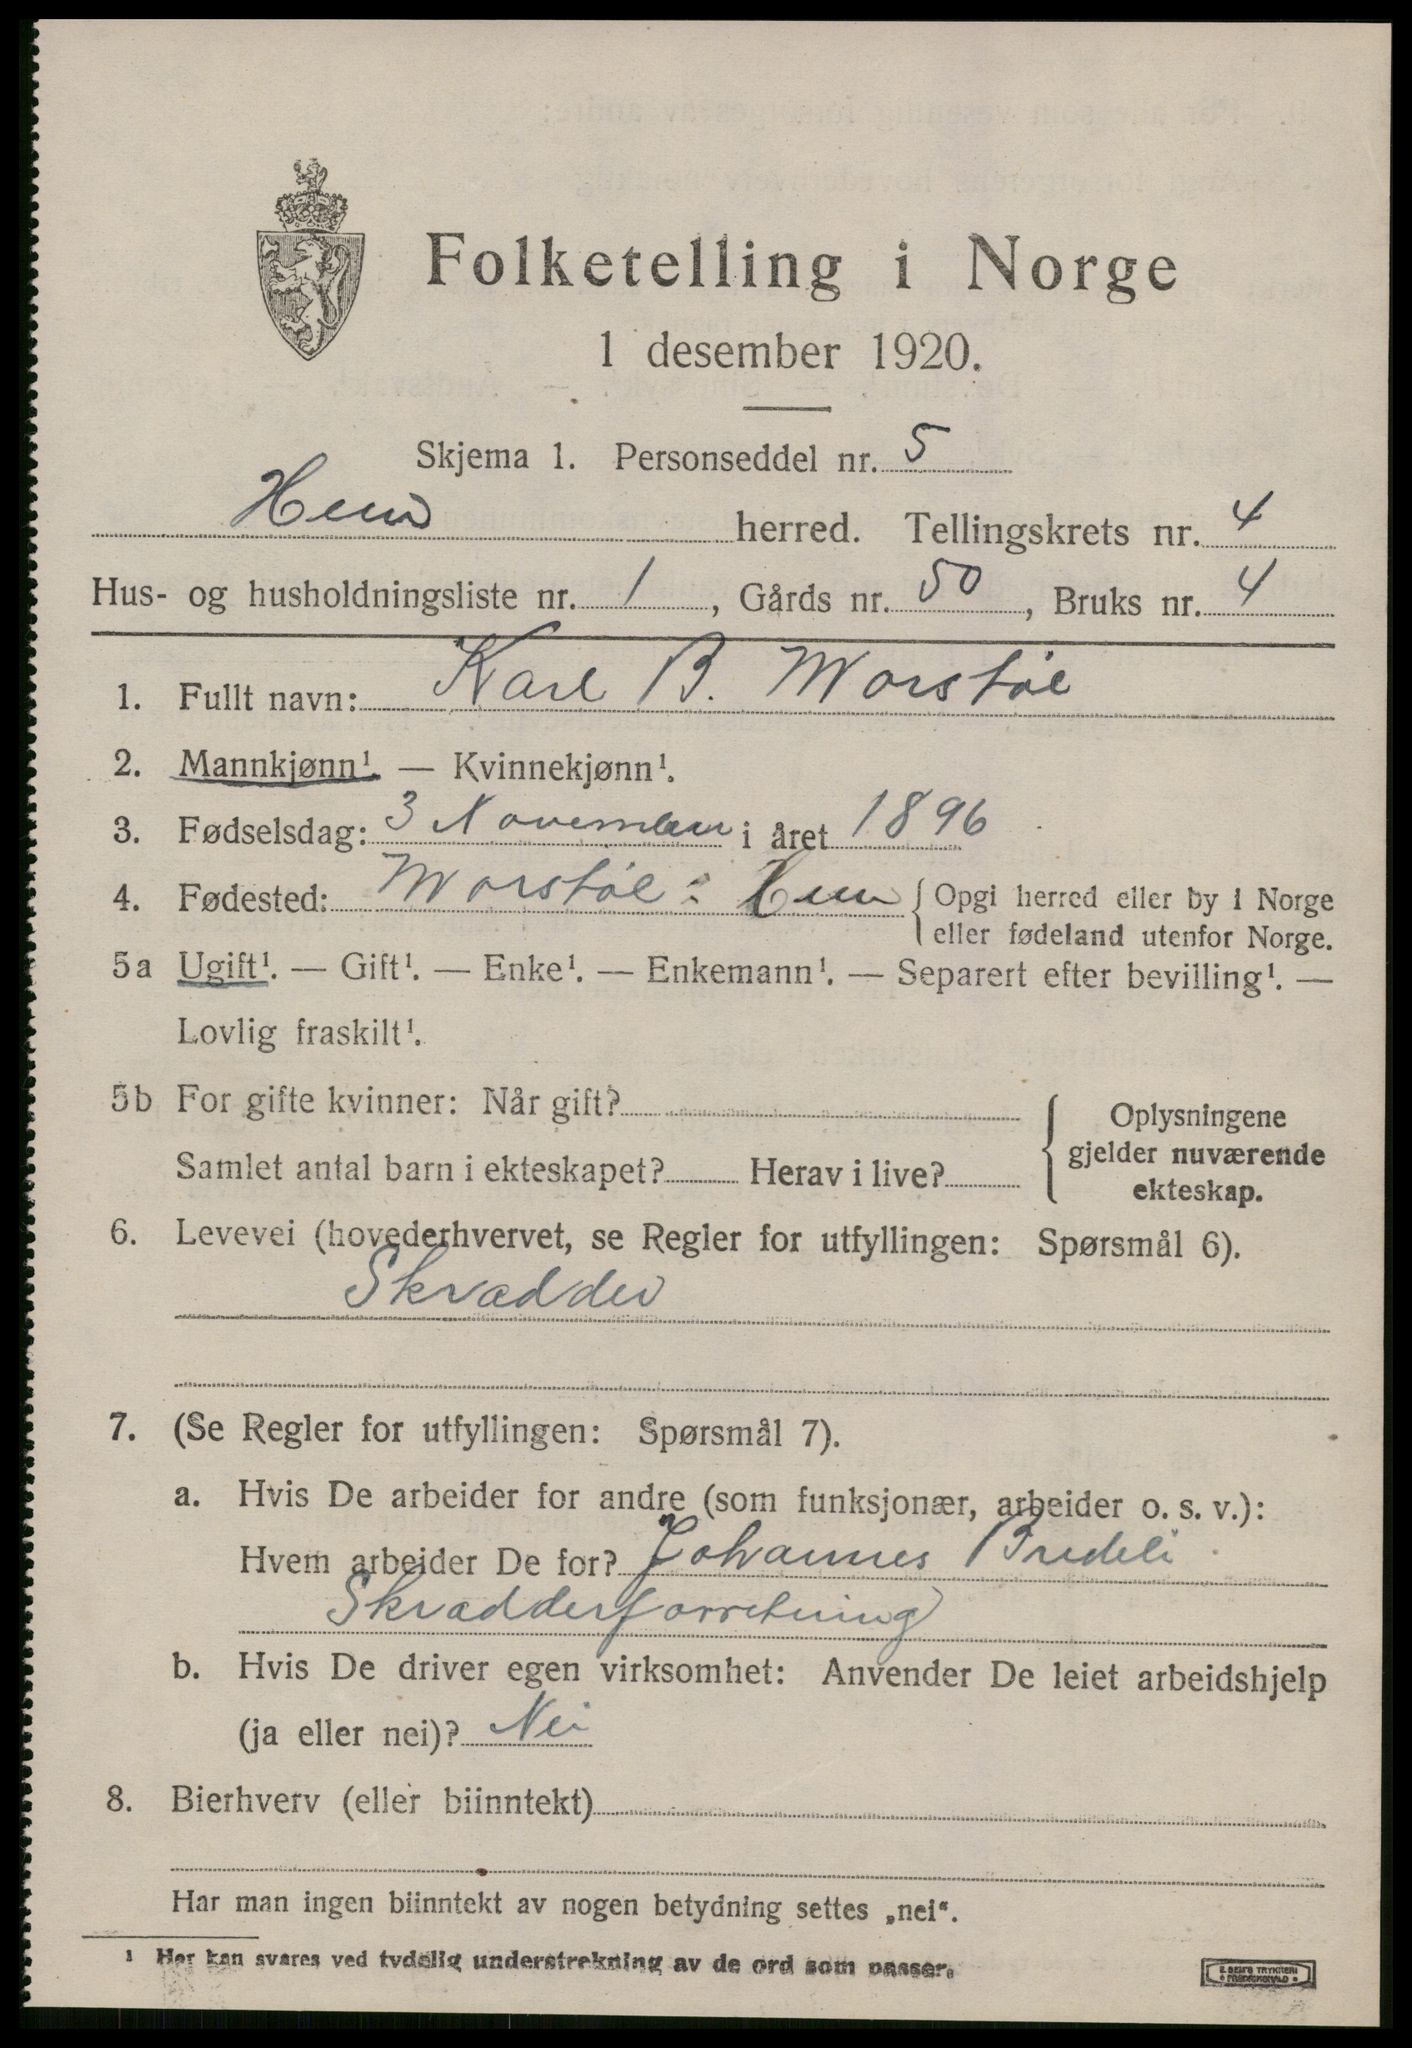 Folketelling i Norge
1 desember 1920.
Skjema 1. Personseddel nr. 5
Hem herred. Tellingskrets nr. 4
Hus- og husholdningsliste nr. 1, Gårds nr. 50, Bruks nr. 4
1. Fullt navn: Karl B. Worstøl
2. Mannkjønn¹. — Kvinnekjønn¹.
3. Fødselsdag: 3 November i året 1896
4. Fødested: Worstøl: Hem { Opgi herred eller by i Norge
eller fødeland utenfor Norge.
5a Ugift¹. — Gift¹. — Enke¹. — Enkemann¹. — Separert efter bevilling¹. —
Lovlig fraskilt¹.
5b For gifte kvinner: Når gift?
Samlet antal barn i ekteskapet? Herav i live?
{ Oplysningene
gjelder nuværende
ekteskap.
6. Levevei (hovederhvervet, se Regler for utfyllingen: Spørsmål 6).
Skrædder
7. (Se Regler for utfyllingen: Spørsmål 7).
a. Hvis De arbeider for andre (som funksjonær, arbeider o. s. v.):
Hvem arbeider De for? Johannes Bredeli
Skrædderforretning
b. Hvis De driver egen virksomhet: Anvender De leiet arbeidshjelp
(ja eller nei)? Nei
8. Bierhverv (eller biinntekt)
Har man ingen biinntekt av nogen betydning settes „nei“.
¹ Her kan svares ved tydelig understrekning av de ord som passer.